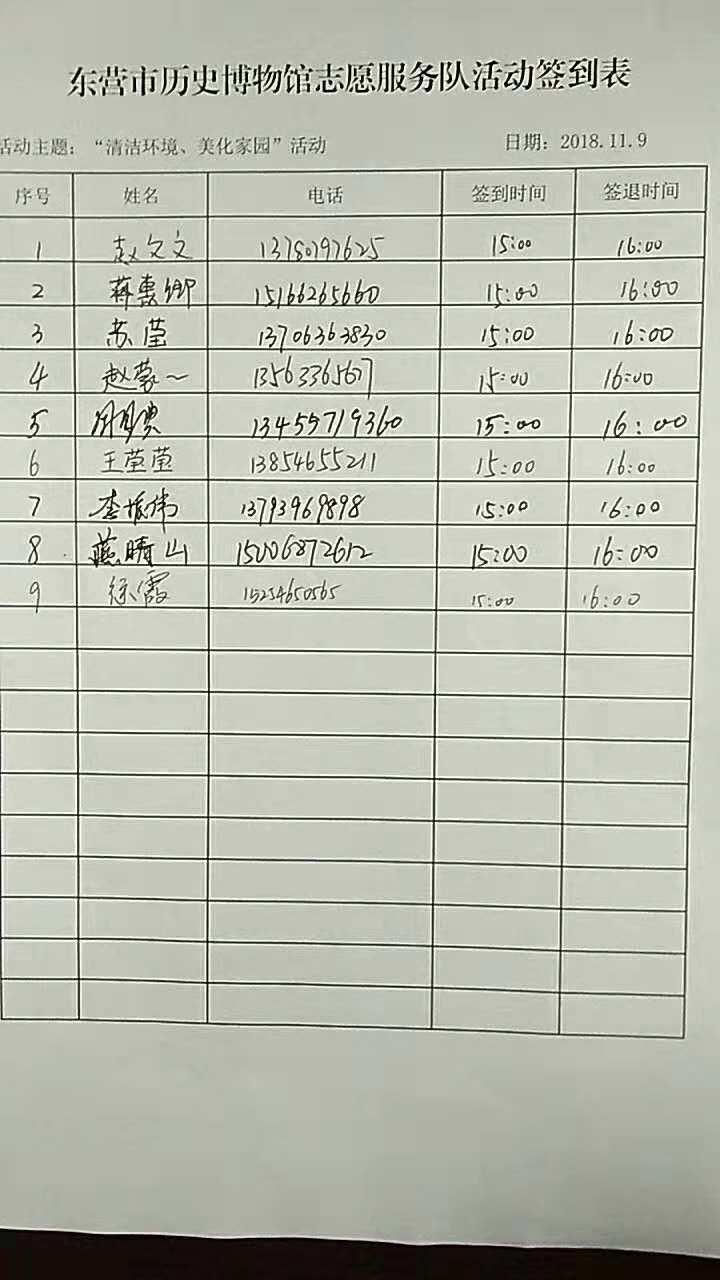 东营市历史博物馆志愿服务队活动签到表
活动主题：“清洁环境、美化家园”活动 日期：2018.11.9
序号 姓名 电话 签到时间 签退时间
1 赵文文 13780797625 15:00 16:00
2 蒋惠卿 15166265660 15:00 16:00
3 苏莹 13706363830 15:00 16:00
4 赵蒙 13563365677 15:00 16:00
5 13455719360 15:00 16:00
6 王莹莹 13854655211 15:00 16:00
7 李振伟 13793969898 15:00 16:00
8 燕晴山 15006872612 15:00 16:00
9 徐霞 15254650565 15:00 16:00